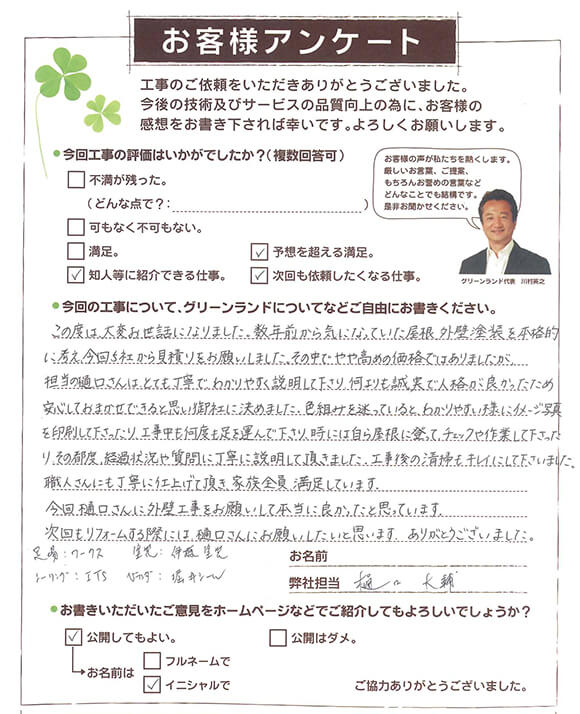 お客様アンケート
工事のご依頼をいただきありがとうございました。
今後の技術及びサービスの品質向上の為に、お客様の
感想をお書き下されば幸いです。よろしくお願いします。
●今回工事の評価はいかがでしたか?(複数回答可)
□ 不満が残った。
(どんな点で?: )
□ 可もなく不可もない。
□ 満足。 ☑ 予想を超える満足。
☑ 知人等に紹介できる仕事。 ☑ 次回も依頼したくなる仕事。
お客様の声が私たちを熱くします。
厳しいお言葉、ご提案、
もちろんお誉めの言葉など
どんなことでも結構です。
是非お聞かせください。
グリーンランド代表 川村英之
●今回の工事について、グリーンランドについてなどご自由にお書きください。
この度は、大変お世話になりました。数年前から気になっていた屋根、外壁塗装を本格的
に考え、今回5社から見積りをお願いしました。その中でやや高めの価格ではありましたが、
担当の樋口さんはとても丁寧で、わかりやすく説明して下さり、何よりも誠実で人格が良かったため
安心しておまかせできると思い御社に決めました。色組みを迷っていると、わかりやすい様にイメージ写真
を印刷して下さったり、工事中も何度も足を運んで下さり、時には自ら屋根に登って、チェックや作業して下さった
り、その都度、経過状況や質問に丁寧に説明して頂きました。工事後の清掃もキレイにして下さいました。
職人さんにも丁寧に仕上げて頂き、家族全員満足しています。
今回樋口さんに外壁工事をお願いして本当に良かったと思っています。
次回もリフォームする際には、樋口さんにお願いしたいと思います。ありがとうございました。
足場:ワークス 塗装:伊藤塗装
シーリング:ITS
お名前
弊社担当 樋口 大輔
●お書きいただいたご意見をホームページなどでご紹介してもよろしいでしょうか?
☑ 公開してもよい。 □ 公開はダメ。
→お名前は □ フルネームで
☑ イニシャルで
ご協力ありがとうございました。